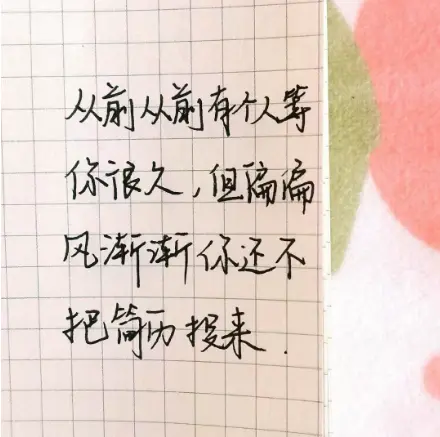 从前从前有个人等
你很久，但偏偏
风渐渐你还不
把简历投来.